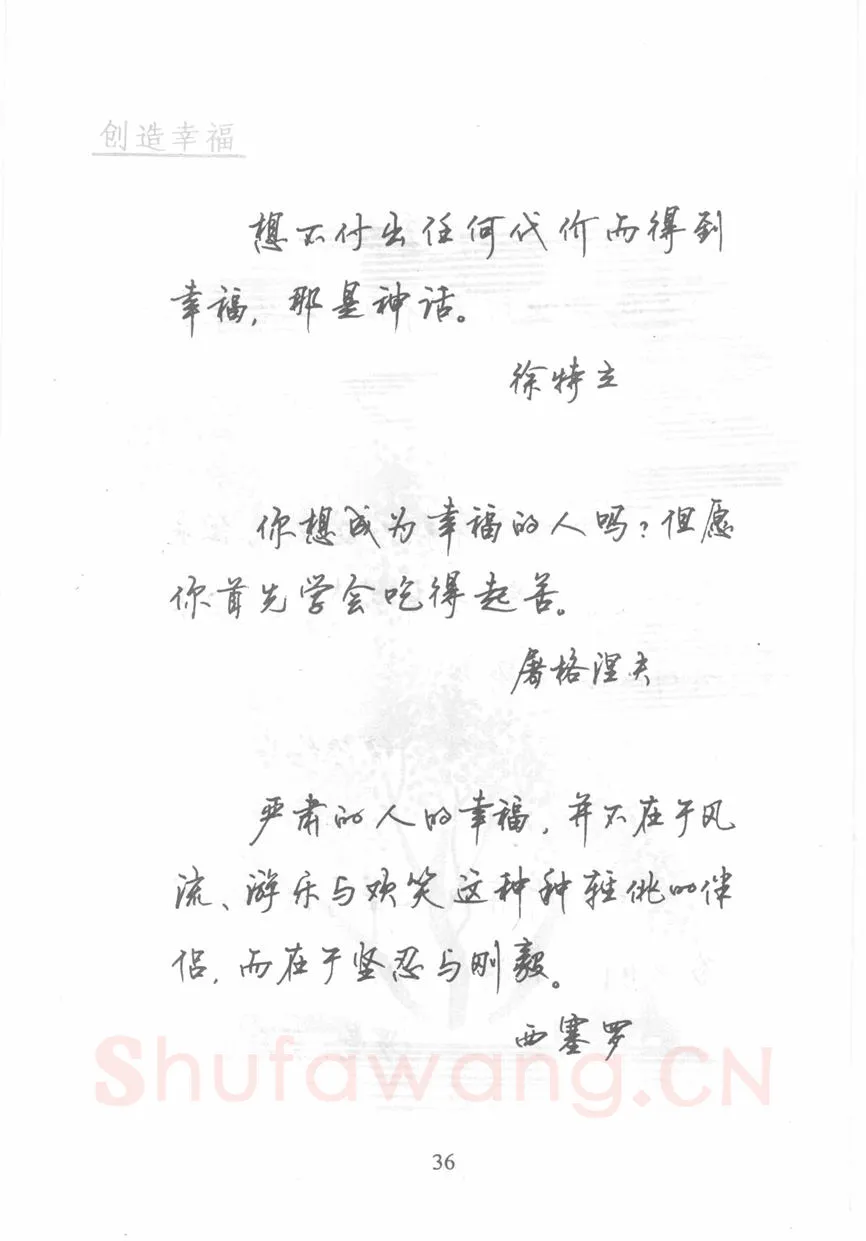 创造幸福
想不付出任何代价而得到
幸福，那是神话。
徐特立
你想成为幸福的人吗？但愿
你首先学会吃得起苦。
屠格涅夫
严肃的人的幸福，并不在于风
流、游乐与欢笑这种种轻佻的伴
侣，而在于坚忍与刚毅。
西塞罗
Shufawang.CN
36